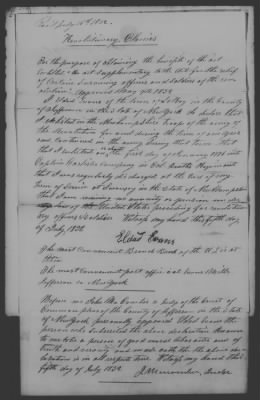 Rec'd July 16th 1832.
Revolutionary Claims
For the purpose of obtaining the benefits of the act
entitled "An act Supplementary to the Act for the relief
of Certain Surviving officers and Soldiers of the rev-
olution" approved May 15th 1828
I Eldad Evans of the town of in the County
of Jefferson in the State of New York do declare that
I enlisted in the New Hampshire troops of the army of
the Revolution for and during the term of
and Continued in the army During that term That
that I enlisted on the first day of January 1781 in
Captain Company in Col. Regiment
that I was regularly discharged at the end of my
term of Service at in the State of New Hampshire
that I am receiving no annuity or pension
of the United States providing for revolution-
ary officers & Soldiers. Witness my hand this fifth day
of July 1832
Eldad Evans
The most Convenient Branch Bank of the U.S. is at
Utica
The most Convenient post office is at
Jefferson in New York
Before me John a Judge of the Court of
Common pleas of the County of Jefferson in the State
of New York personally appeared Eldad Evans the
person who Subscribed the above declaration known
to me to be a person of good moral character and of
truth and and made oath that the above dec-
laration is in all respects true. Witness my hand this
fifth day of July 1832
Judge